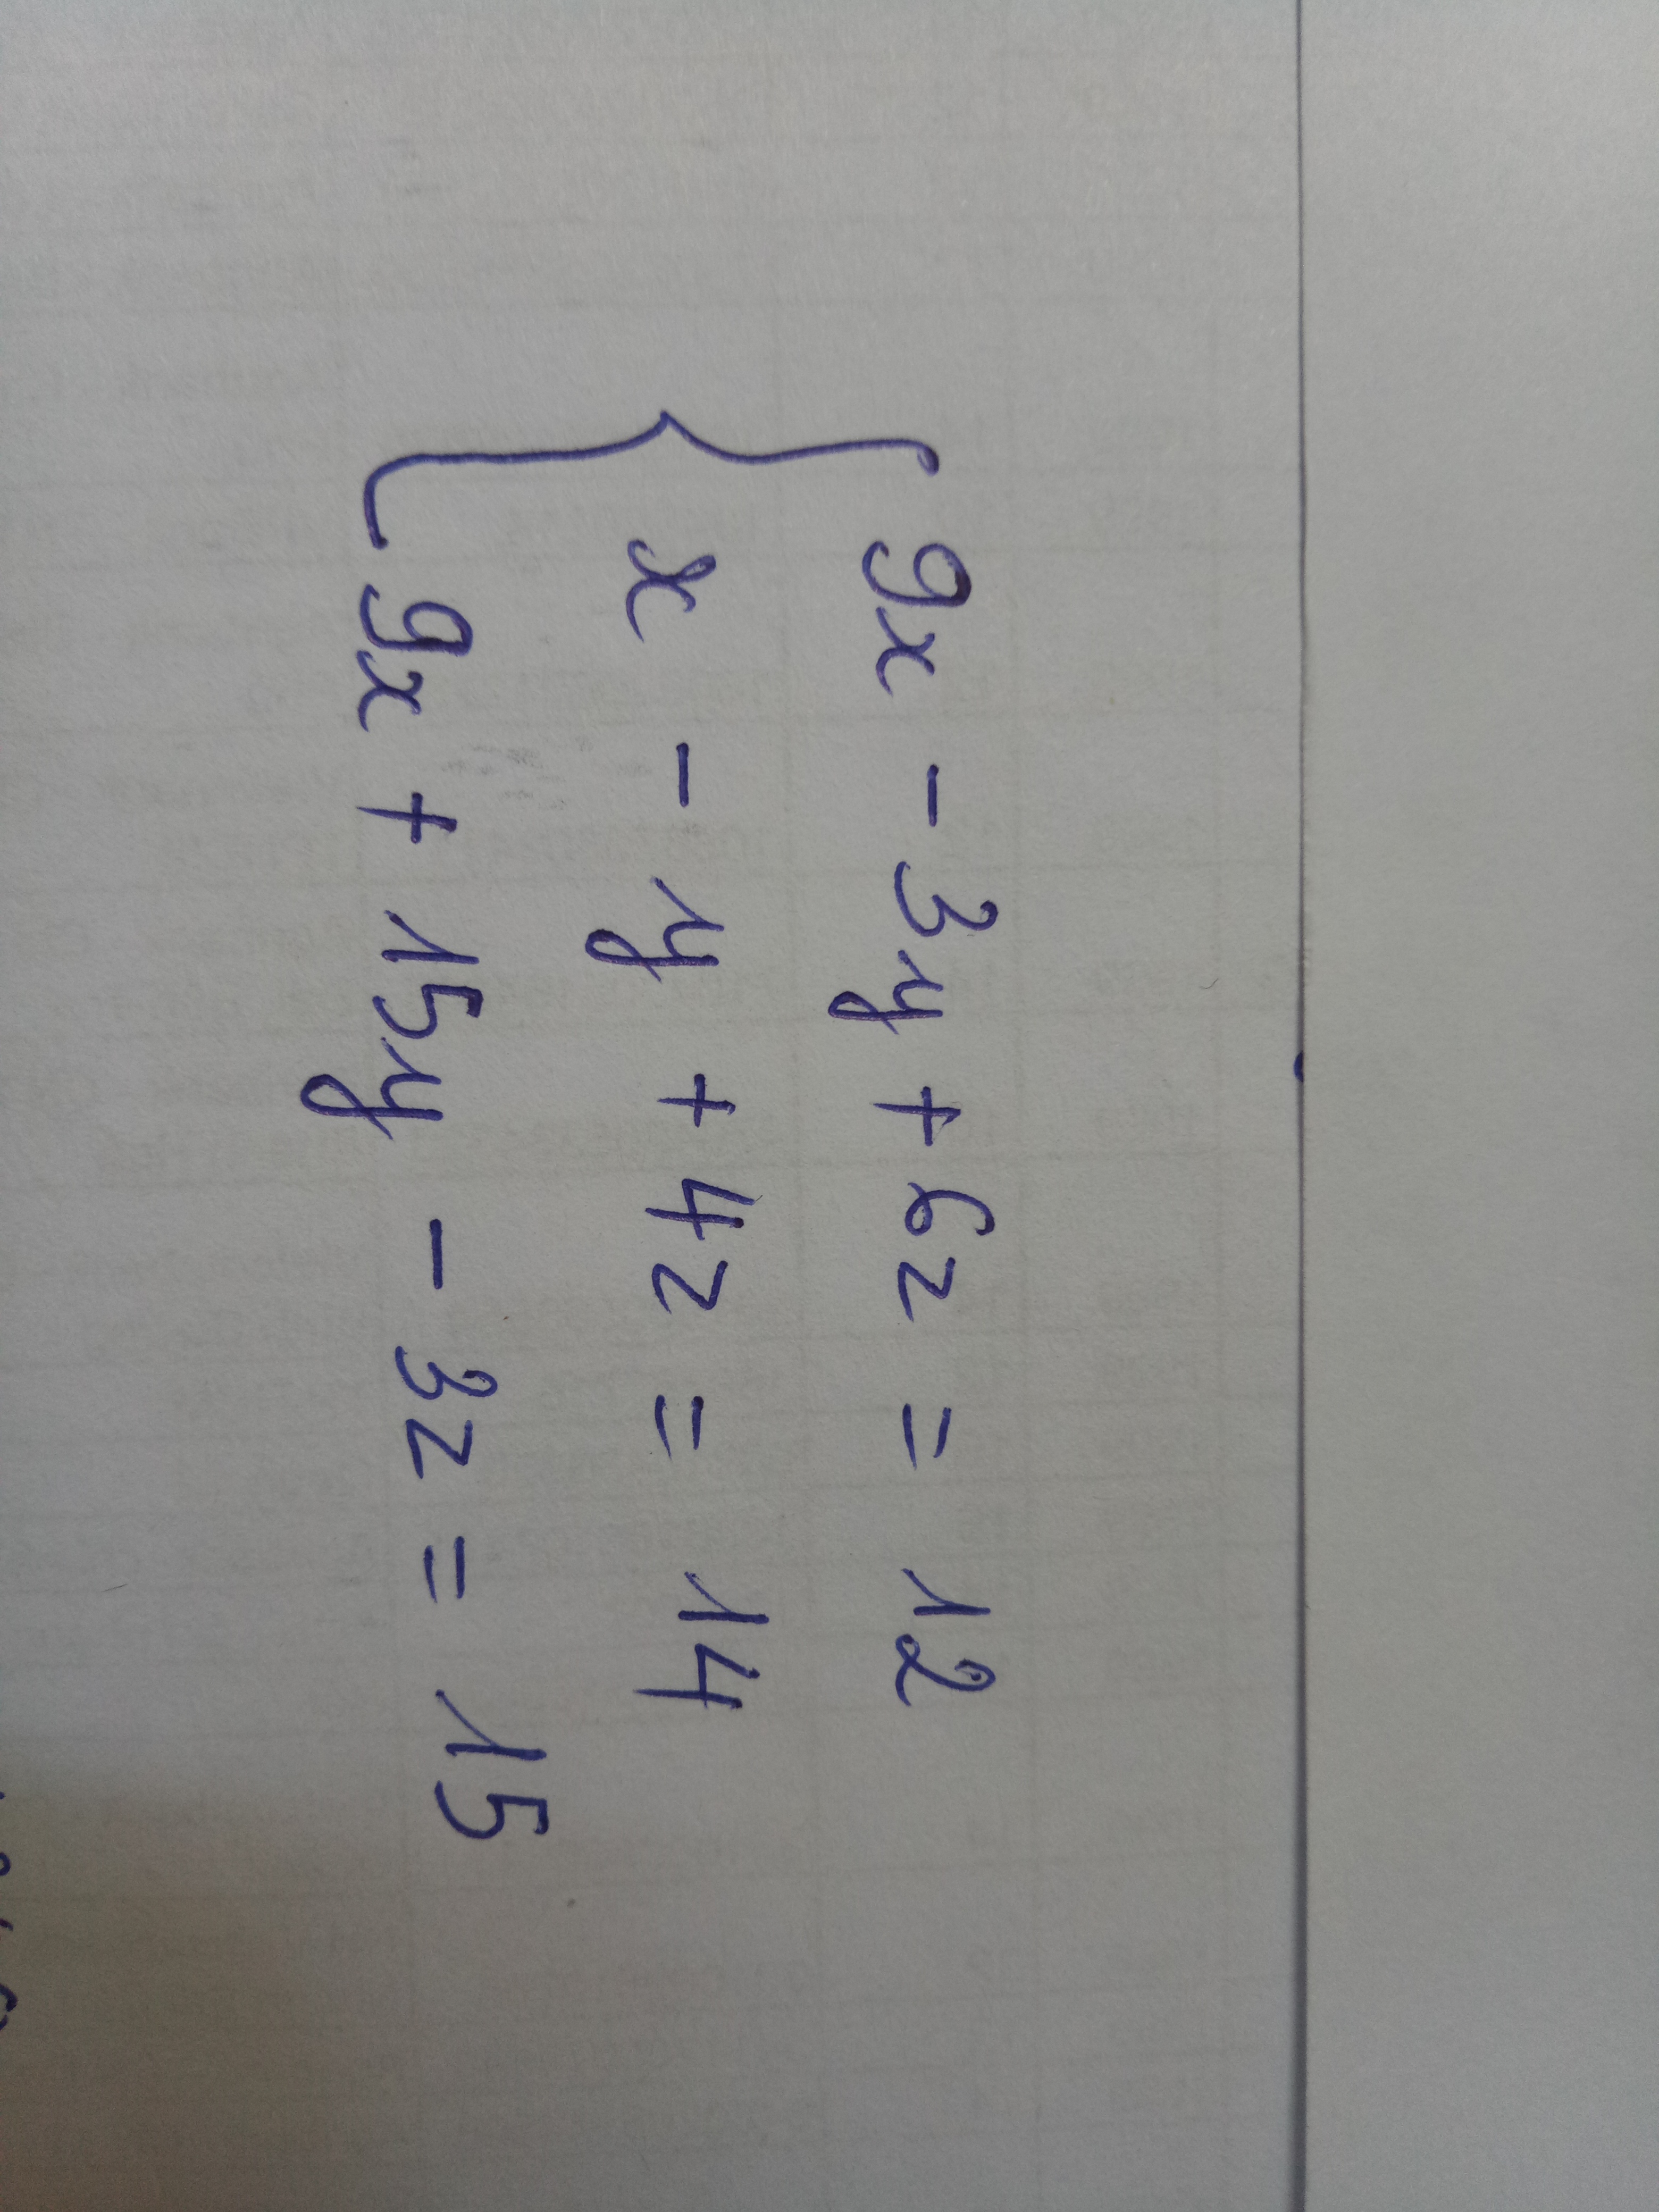 9x - 3y + 6z = 12
x - y + 4z = 14
9x + 15y - 3z = 15